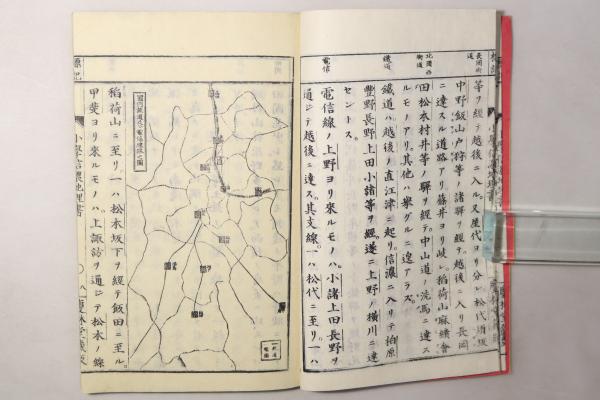 長岡街道
等ヲ經テ越後ニ入ル。又屋代ヨリ分レ松代須坂
中野飯山戸狩等ノ諸驛ヲ經テ越後ニ入リ長岡
ニ達スル道路アリ。篠井ヨリ岐レ稻荷山麻績會
北國西街道
田松本村井等ノ驛ヲ經テ中山道ノ洗馬ニ達ス
ルモノアリ。其他ハ擧グルニ遑アラズ。
鐵道
鐵道ハ越後ノ直江津ニ起リ信濃ニ入リテ柏原
豐野長野上田小諸等ヲ經遂ニ上野ノ横川ニ達
セントス。
電信
電信線ノ上野ヨリ來ルモノハ小諸上田長野ヲ
通ジテ越後ニ達ス。其支線一ハ松代ニ至リ。一ハ
標記
稻荷山ニ至リ。一ハ松本坂下ヲ經テ飯田ニ至ル。
甲斐ヨリ來ルモノハ上諏訪ヲ通ジテ松本ノ線
小學信濃地理書